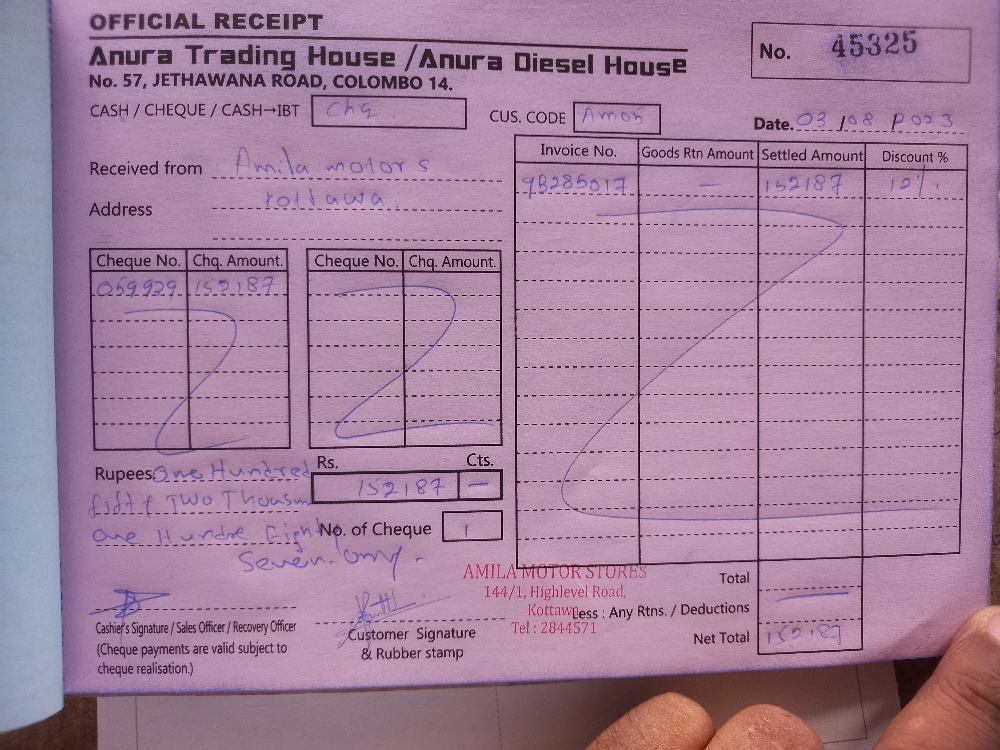 OFFICIAL RECEIPT
Anura Trading House / Anura Diesel House
No. 57, JETHAWANA ROAD, COLOMBO 14.
No. 45325
CASH / CHEQUE / CASH→IBT Chq.
CUS. CODE Am05
Date. 03 / 08 2023
Received from Amila motors
Address kottawa.
Cheque No. Chq. Amount.
059929 152187
Cheque No. Chq. Amount.
Invoice No. Goods Rtn Amount Settled Amount Discount %
9B285017 — 152187 12%.
Rupees One Hundred
fifty Two Thousan
one Hundre Eighty
Seven. only.
Rs. Cts.
152187 —
No. of Cheque 1
AMILA MOTOR STORES
144/1, Highlevel Road,
Kottawa.
Tel : 2844571
Total
Less : Any Rtns. / Deductions
Net Total 152187
Cashier's Signature / Sales Officer / Recovery Officer
(Cheque payments are valid subject to
cheque realisation.)
Customer Signature
& Rubber stamp